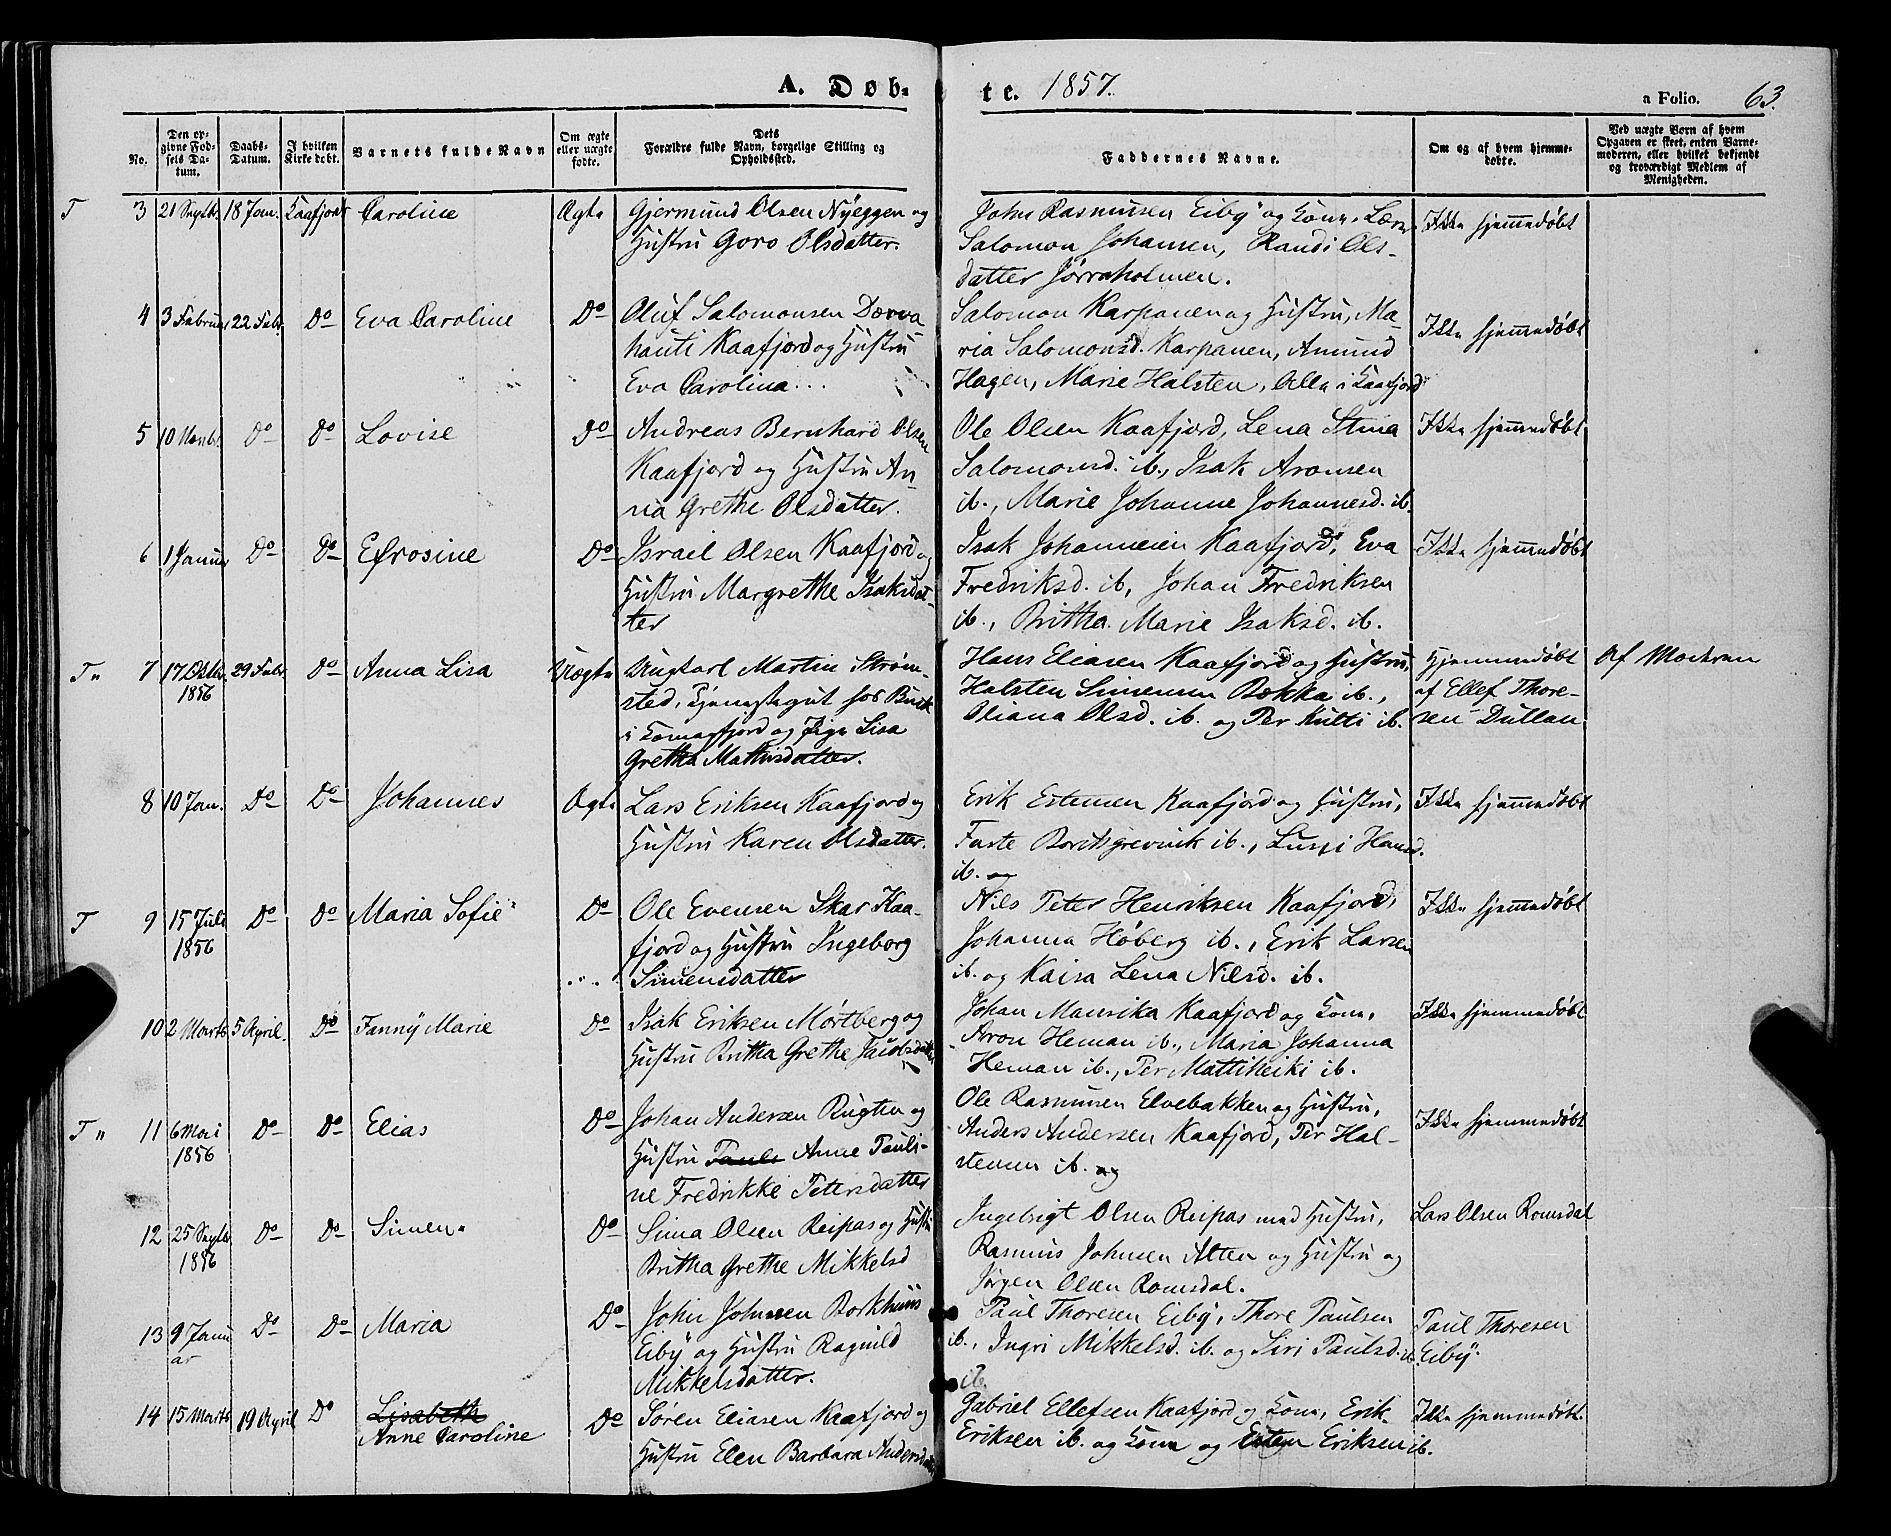 A. Døb-
te. 1857.
a Folio. 63.
No.
Den op-
givne Fød-
sels Da-
tum.
Daabs-
Datum.
I hvilken
Kirke døbt.
Barnets fulde Navn
Om ægte
eller uægte
fødte.
Dets
Forældre fulde Navn, borgelige Stilling og
Opholdssted.
Faddernes Navne.
Om og af hvem hjemme-
døbte.
Ved uægte Børn af hvem
Opgaven er skeet, enten Barne-
moderen, eller hvilket bekjendt
og troværdigt Medlem af
Menigheden.
T 3 21 Septb. 18 Jan. Kaafjord Caroline Ægte Gjermund Olsen Nyeggen og
Hustru Goro Olsdatter.
John Rasmusen Eiby og Kone, Lærer
Salomon Johansen, Randi Ols-
datter Jørraholmen.
Ikke hjemmedøbt
4 3 Februar 22 Febr. Do Eva Caroline Do Oluf Salomonsen
Kaafjord og Hustru
Eva Carolina
Salomon Karpanen og Hustru, Ma-
ria Salomonsd. Karpanen, Amund
Hagen, Marie Halsten, Alle i Kaafjord
Ikke hjemmedøbt
5 10 Do Do Lovise Do Andreas Bernhard Olsen
Kaafjord og Hustru An-
na Grethe Olsdatter.
Ole Olsen Kaafjord, Lena Stina
Salomonsd. ib., Isak Aronsen
ib., Marie Johanne Johannesd. ib.
Ikke hjemmedøbt
6 1 Januar Do Do Efrosine Do Israel Olsen Kaafjord og
Hustru Margrethe Isaksdat-
ter
Isak Johannesen Kaafjord, Eva
Fredriksd. ib., Johan Fredriksen
ib., Britha Marie Isaksd. ib.
Ikke hjemmedøbt
T" 7 17 Oktbr. 1856 29 Febr. Do Anna Lisa Uægte Ungkarl Martin Strøm-
sted, Tjenestegut hos Buck
i Komagfjord og Pige Lisa
Gretha Mathisdatter.
Hans Eliasen Kaafjord og Hustru,
Halsten Simensen Bekka ib.,
Oliana Olsd. ib. og Per Kulti ib.
Hjemmedøbt
af Ellef Thore-
sen Dullan
Af Moderen
8 10 Jan. Do Do Johannes Ægte Lars Eriksen Kaafjord og
Hustru Karen Olsdatter.
Erik Estensen Kaafjord og Hustru,
Borchgrevink ib., Lussi Hansd.
ib. og
Ikke hjemmedøbt
T 9 15 Juli 1856 Do Do Maria Sofie Do Ole Evensen Skar Kaa-
fjord og Hustru Ingeborg
Simensdatter
Nils Peter Henriksen Kaafjord,
Johanna Høberg ib., Erik Larsen
ib. og Kaisa Lena Nilsd. ib.
Ikke hjemmedøbt
10 2 Marts 5 April. Do Fanny Marie Do Isak Eriksen Mørtberg og
Hustru Britha Grethe Jacobsdatter
Johan Mansika Kaafjord og Kone,
Aron Heman ib., Maria Johanna
Heman ib., Per Mattiheiki ib.
Ikke hjemmedøbt
T" 11 6 Mai 1856 Do Do Elias Do Johan Andersen Rugten og
Hustru Pauli Anne Pauli-
ne Fredrikke Petersdatter
Ole Rasmusen Elvebakken og Hustru,
Anders Andersen Kaafjord, Per Hal-
stensen ib. og
Ikke hjemmedøbt
12 25 Septbr 1856 Do Do Simen Do Sima Olsen Reipas og Hustru
Britha Grethe Mikkelsd
Ingebrigt Olsen Reipas med Hustru,
Rasmus Johnsen Alten og Hustru og
Jørgen Olsen Romsdal.
Lars Olsen Romsdal
13 9 Janu ar Do Do Maria Do John Johnsen Borkhuus
Eiby og Hustru Ragnild
Mikkelsdatter.
Paul Thoresen Eiby, Thore Paulsen
ib., Ingri Mikkelsd. ib. og Siri Paulsd. ib.
ib.
Paul Thoresen
Eiby.
14 15 Marts 19 April Do Lisabeth
Anne Caroline Do Søren Eliasen Kaafjord og
Hustru Elen Barbara Andersdatter
Gabriel Ellefsen Kaafjord og Kone, Erik
Eriksen ib. og Kone og Esten Eriksen ib.
Ikke hjemmedøbt.